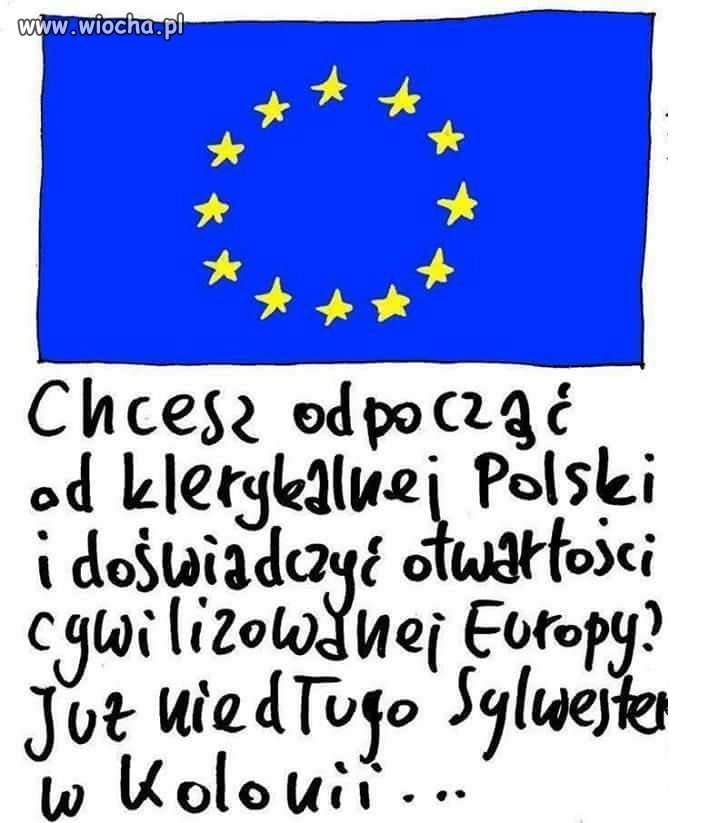 www.wiocha.pl
Chcesz odpocząć
od klerykalnej Polski
i doświadczyć otwartości
cywilizowanej Europy?
Już niedługo Sylwester
w Kolonii...